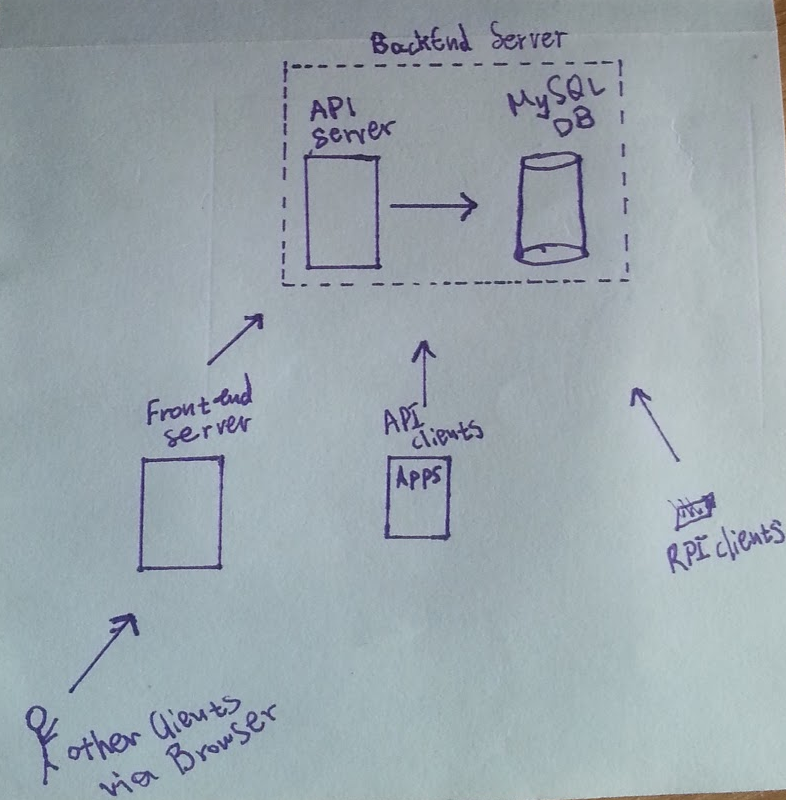 BackEnd Server
API
server
MySQL
DB
Front-end
server
API
clients
Apps
RPI clients
other Clients
via Browser